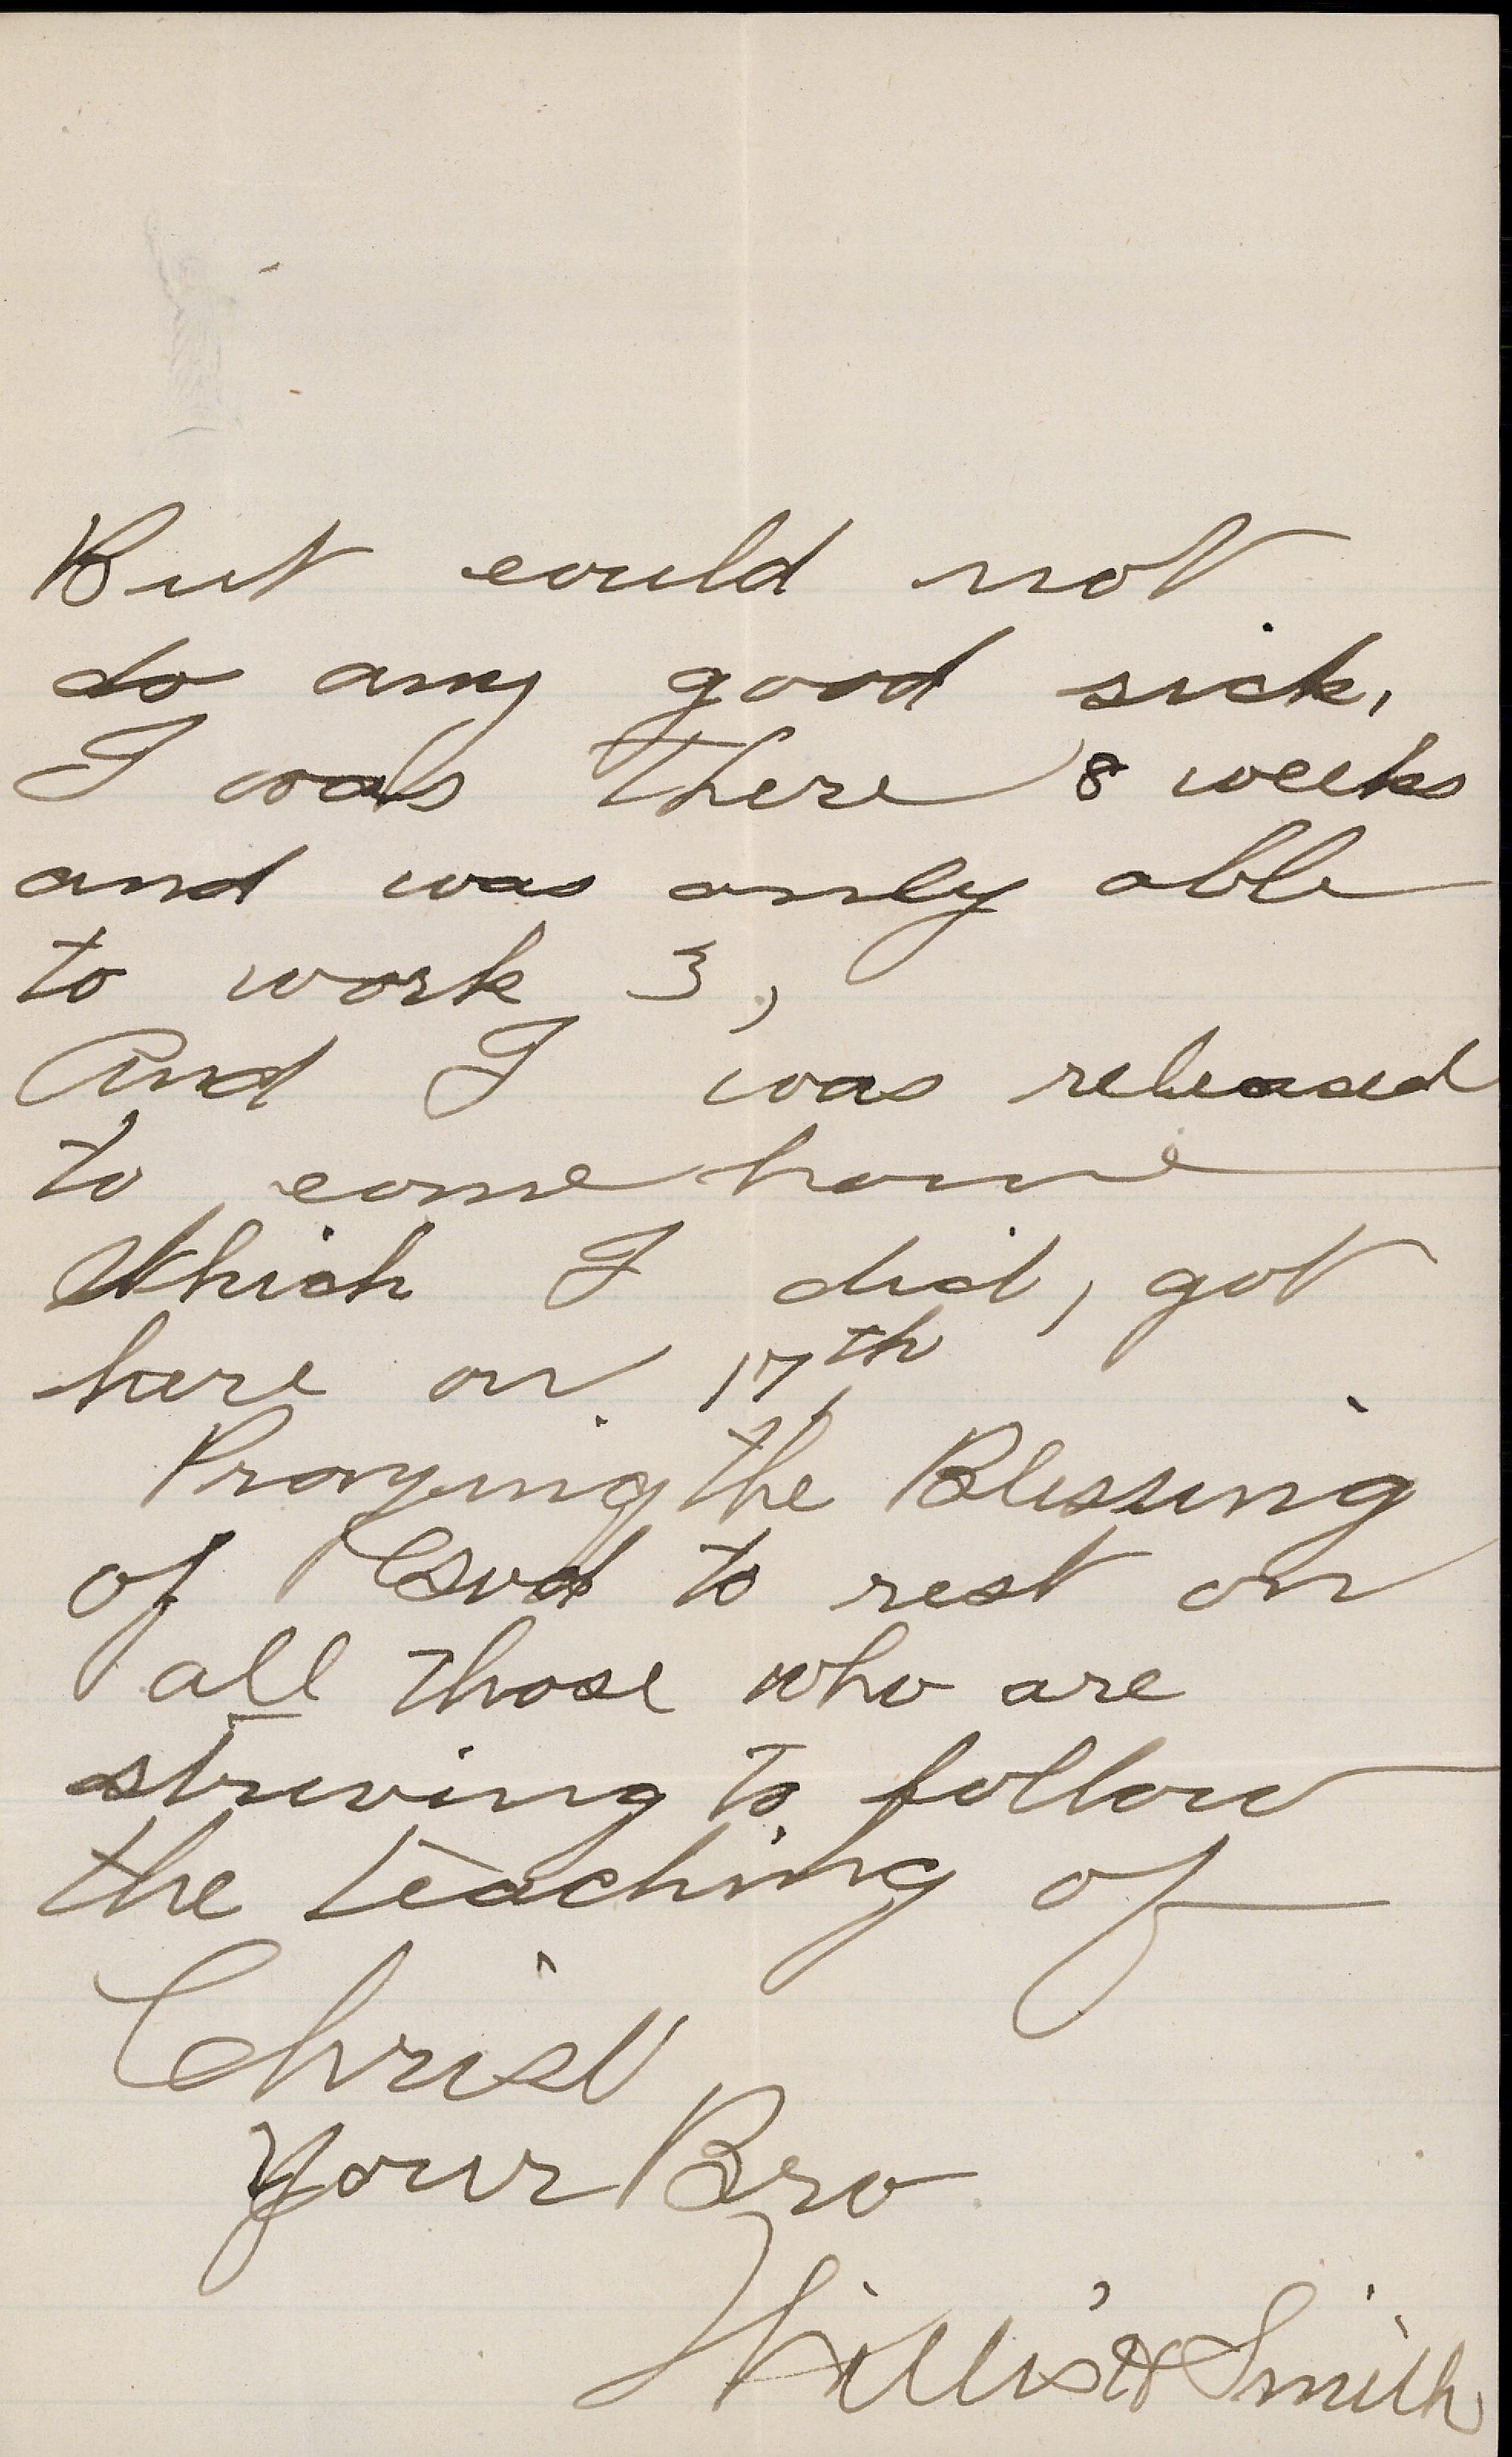 But could not
do any good sick,
I was there 8 weeks
and was only able
to work 3,
And I was released
to come home
Which I did, got
here on 17th
Praying the Blessing
of God to rest on
all those who are
striving to follow
the teaching of
Christ
Your Bro
Willis H Smith